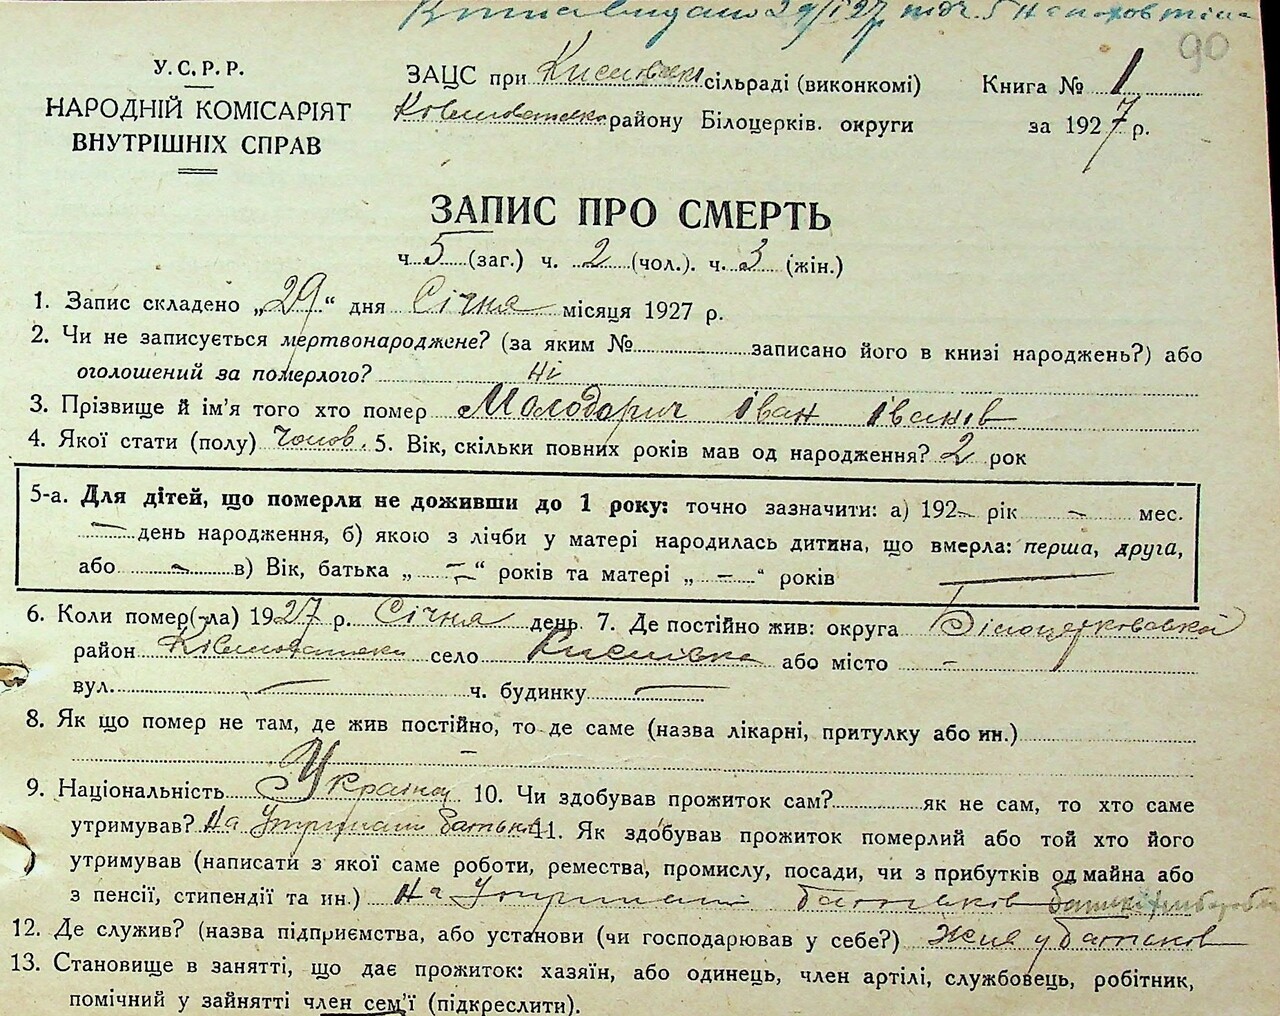 29/I 27
90
У.С.Р.Р.
НАРОДНІЙ КОМІСАРІЯТ
ВНУТРІШНІХ СПРАВ
ЗАЦС при сільраді (виконкомі)
району Білоцерків. округи
Книга № 1
за 1927 р.
ЗАПИС ПРО СМЕРТЬ
ч 5 (заг.) ч. 2 (чол.). ч. 3 (жін.)
1. Запис складено „29“ дня Січня місяця 1927 р.
2. Чи не записується мертвонароджене? (за яким № записано його в книзі народжень?) або
оголошений за померлого? ні
3. Прізвище й ім'я того хто помер Молодорич Іван Іванів
4. Якої стати (полу) Чолов. 5. Вік, скільки повних років мав од народження? 2 рок
5-а. Для дітей, що померли не доживши до 1 року: точно зазначити: а) 192– рік – мес.
– день народження, б) якою з лічби у матері народилась дитина, що вмерла: перша, друга,
або – в) Вік, батька „–“ років та матері „–“ років
6. Коли помер(-ла) 1927 р. Січня день 7. Де постійно жив: округа Білоцерковської
район село або місто –
вул. – ч. будинку –
8. Як що помер не там, де жив постійно, то де саме (назва лікарні, притулку або ин.)
–
9. Національність 10. Чи здобував прожиток сам? як не сам, то хто саме
утримував? На батьків 11. Як здобував прожиток померлий або той хто його
утримував (написати з якої саме роботи, ремества, промислу, посади, чи з прибутків од майна або
з пенсії, стипендії та ин.) На батьків
12. Де служив? (назва підприємства, або установи (чи господарював у себе?) Жив у батьків
13. Становище в занятті, що дає прожиток: хазяїн, або одинець, член артілі, службовець, робітник,
помічний у зайнятті член сем'ї (підкреслити).